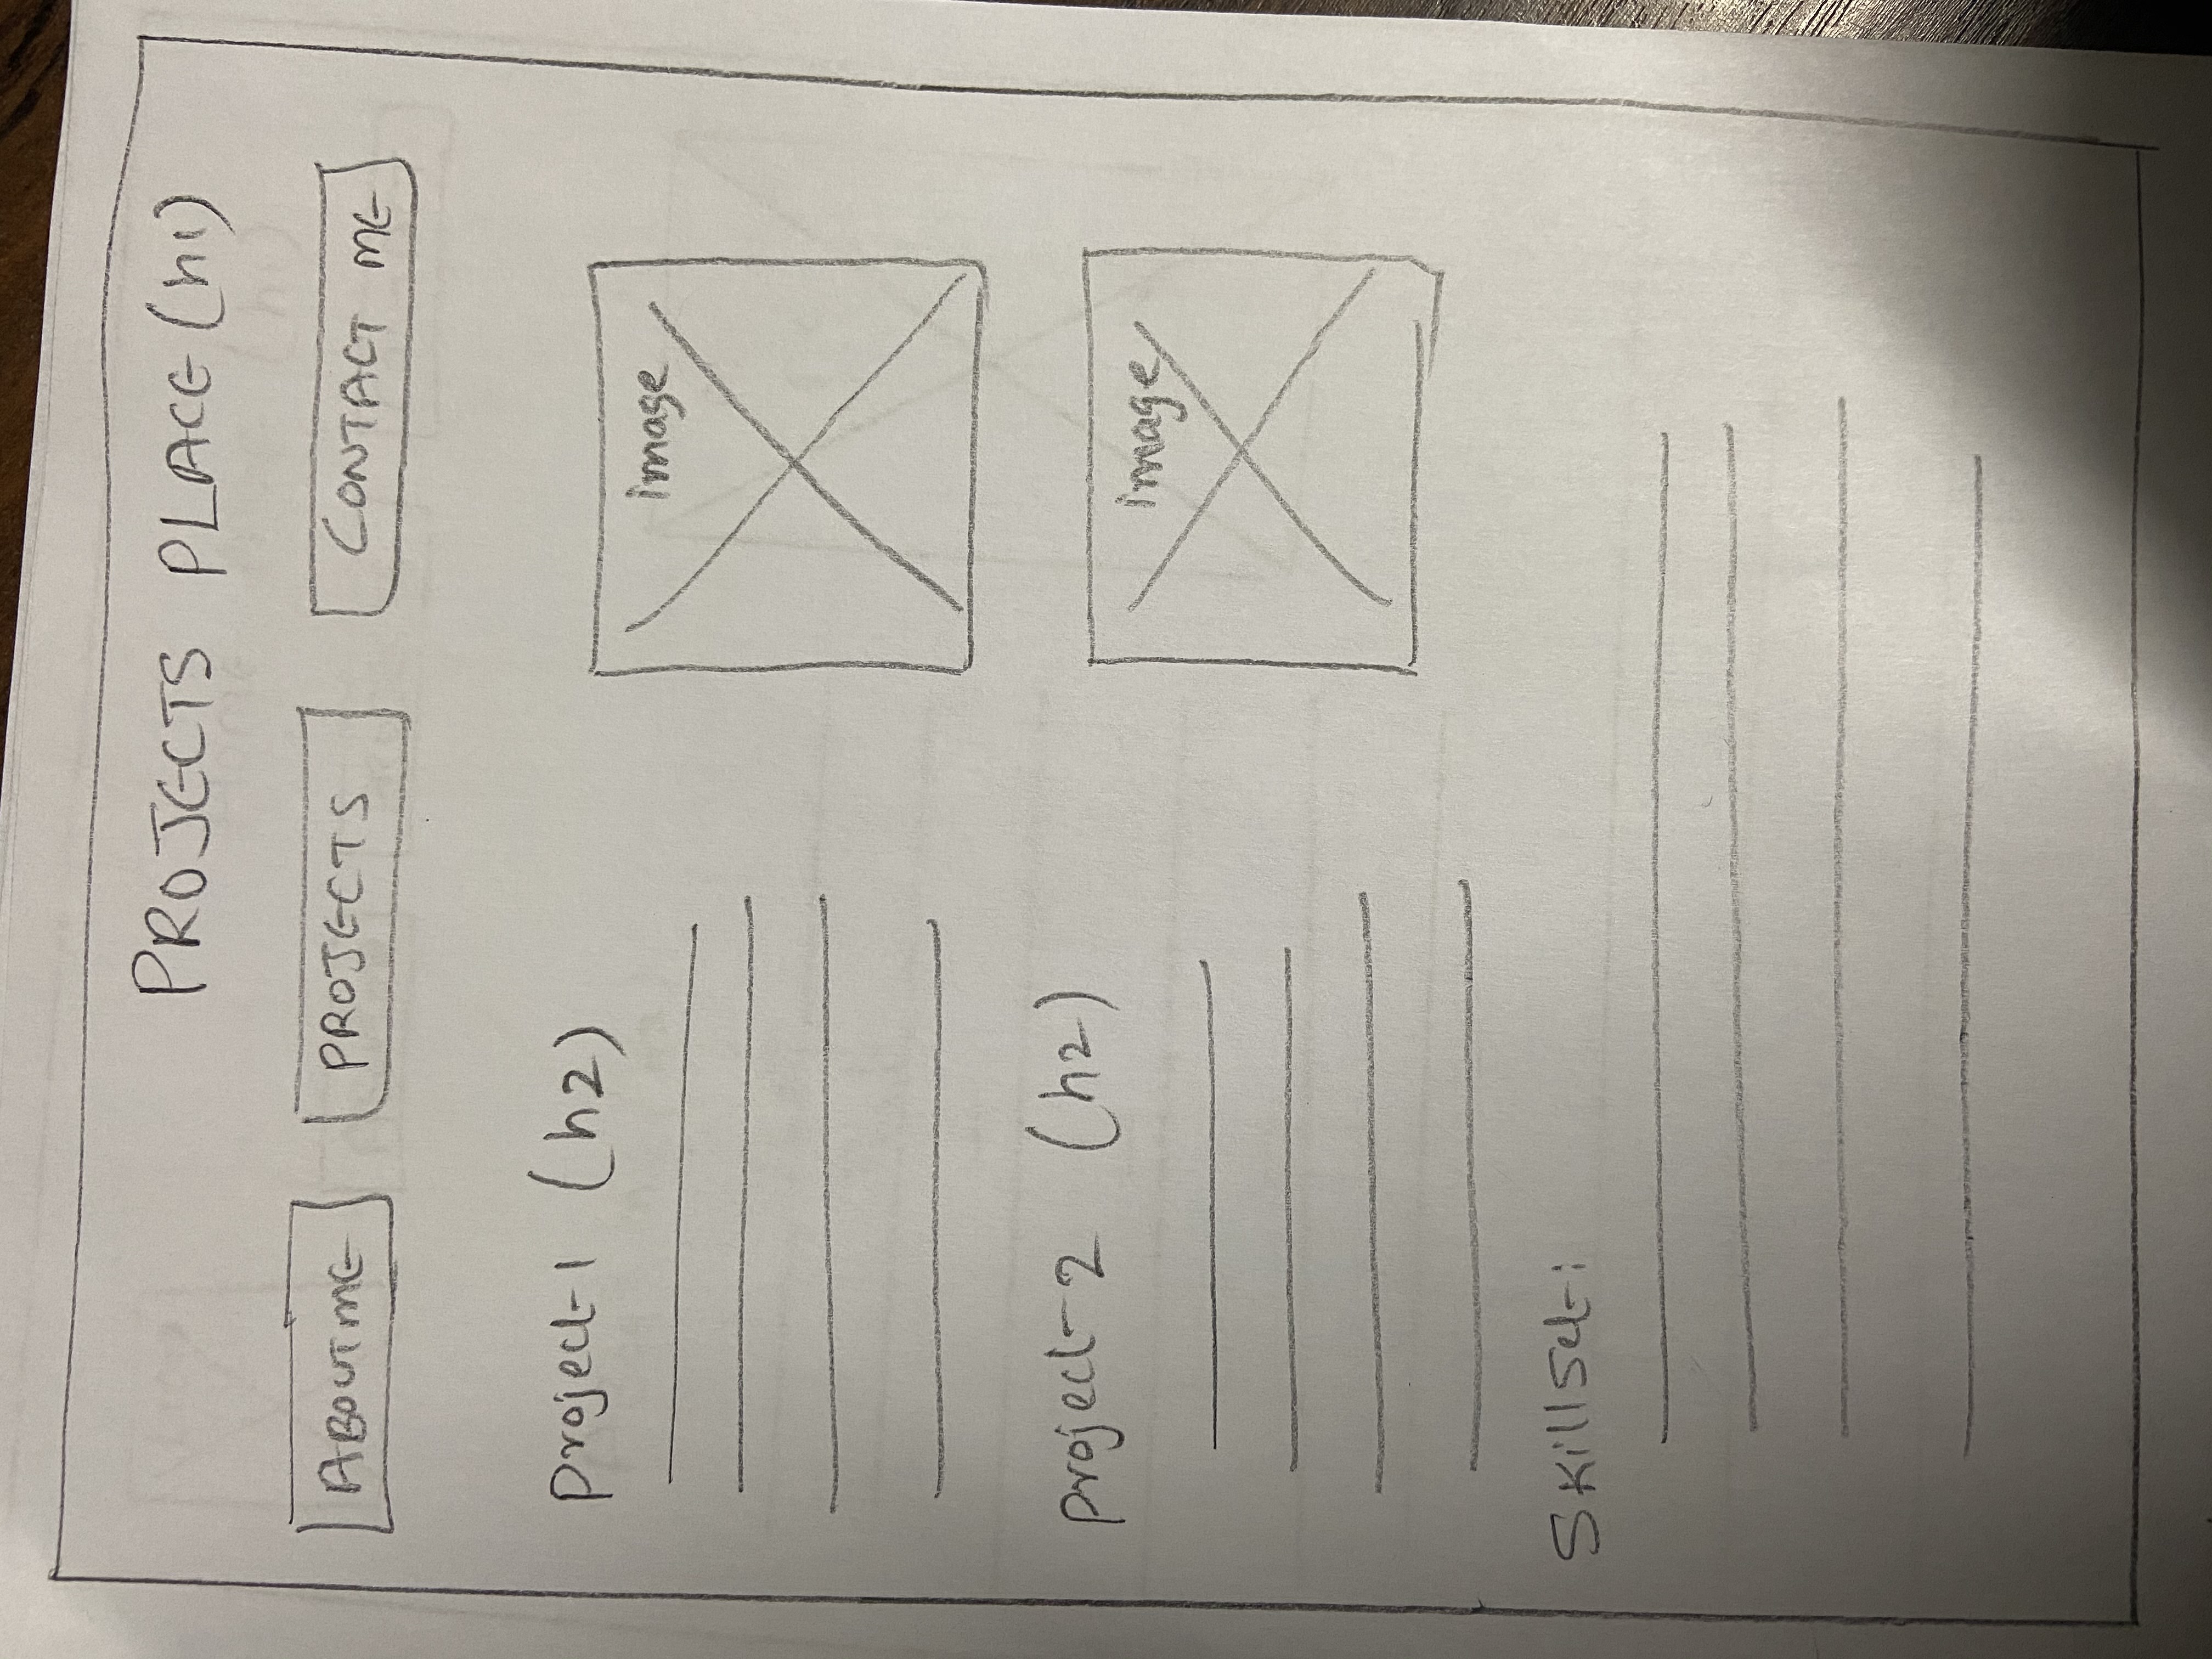 PROJECTS PLACE (h1)
ABOUT ME PROJECTS CONTACT ME
Project-1 (h2)
image
project-2 (h2)
image
Skillset: